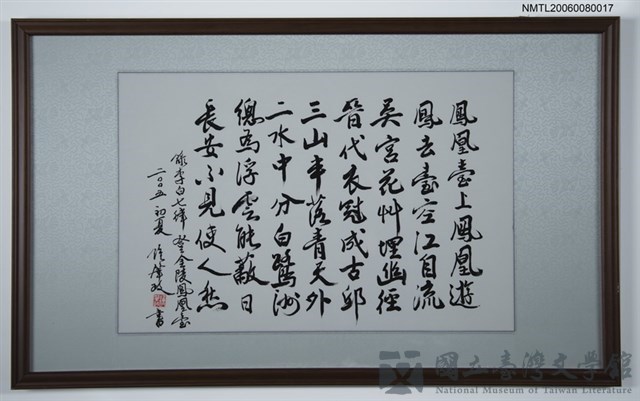 NMTL20060080017
鳳凰臺上鳳凰遊
鳳去臺空江自流
吳宮花艸埋幽徑
晉代衣冠成古邱
三山半落青天外
二水中分白鷺洲
總爲浮雲能蔽日
長安不見使人愁
錄李白七律 登金陵鳳凰臺
二〇〇五 初夏 書
國立臺灣文學館
National Museum of Taiwan Literature